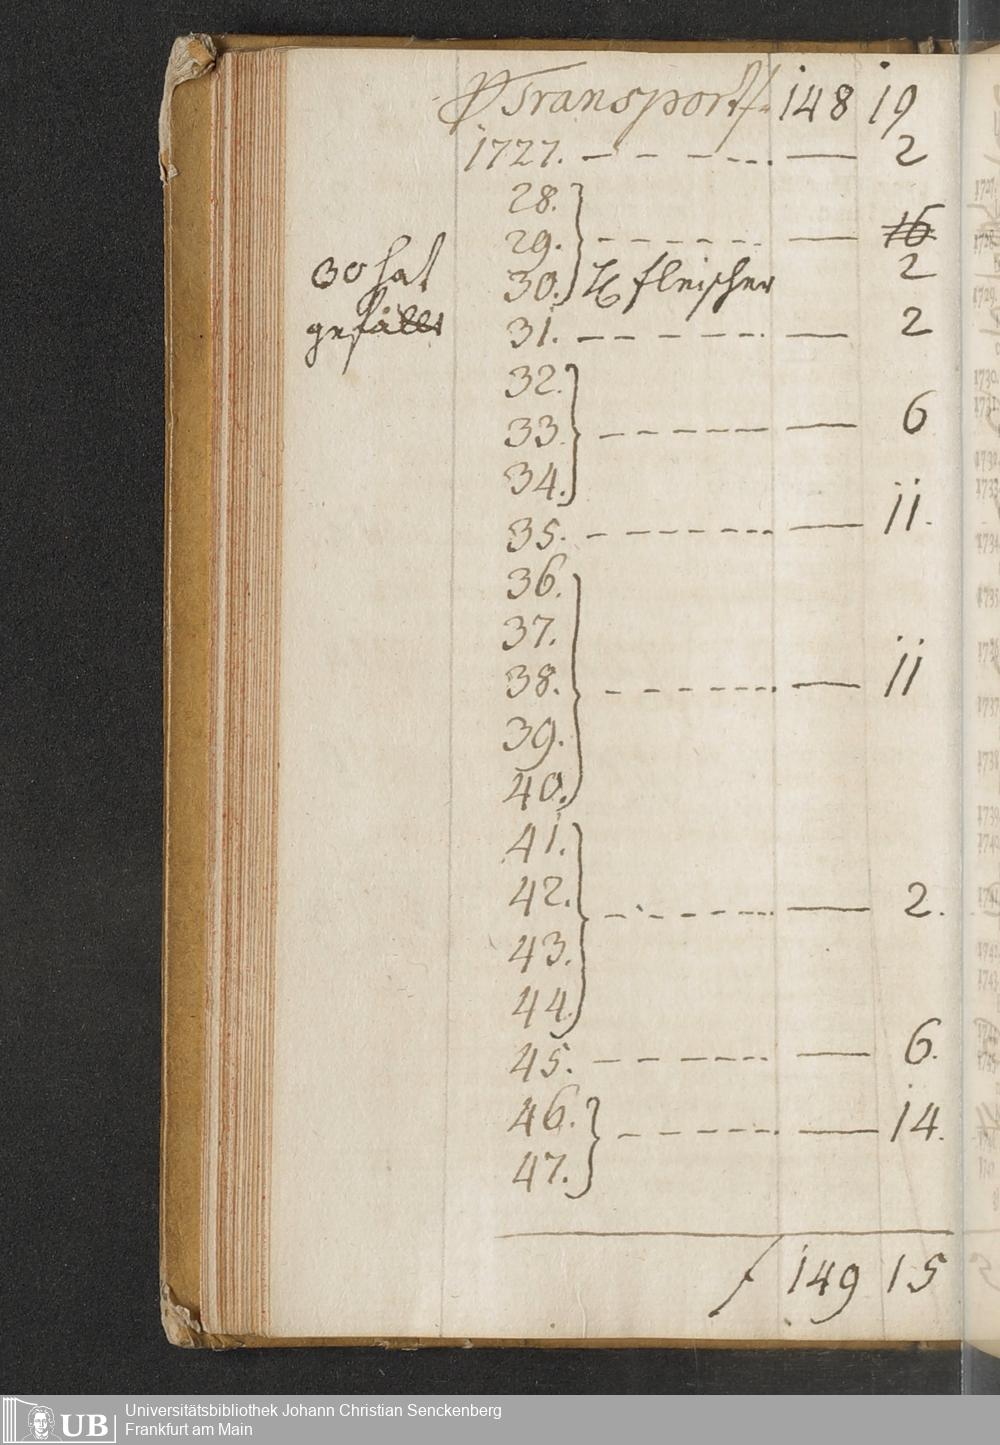 Transport f 148 19
1727. - - - - - — 2
28.
29. - - - - - - — 16
30. fleischer 2
30 hat
gefällt
31. - - - - - — 2
32.
33. - - - - - — 6
34.
35. - - - - - - — 11.
36.
37.
38. - - - - - - — 11
39.
40.
41.
42. - - - - - - — 2.
43.
44.
45. - - - - - — 6.
46. - - - - - — 14.
47.
f 149 15
UB
Universitätsbibliothek Johann Christian Senckenberg
Frankfurt am Main